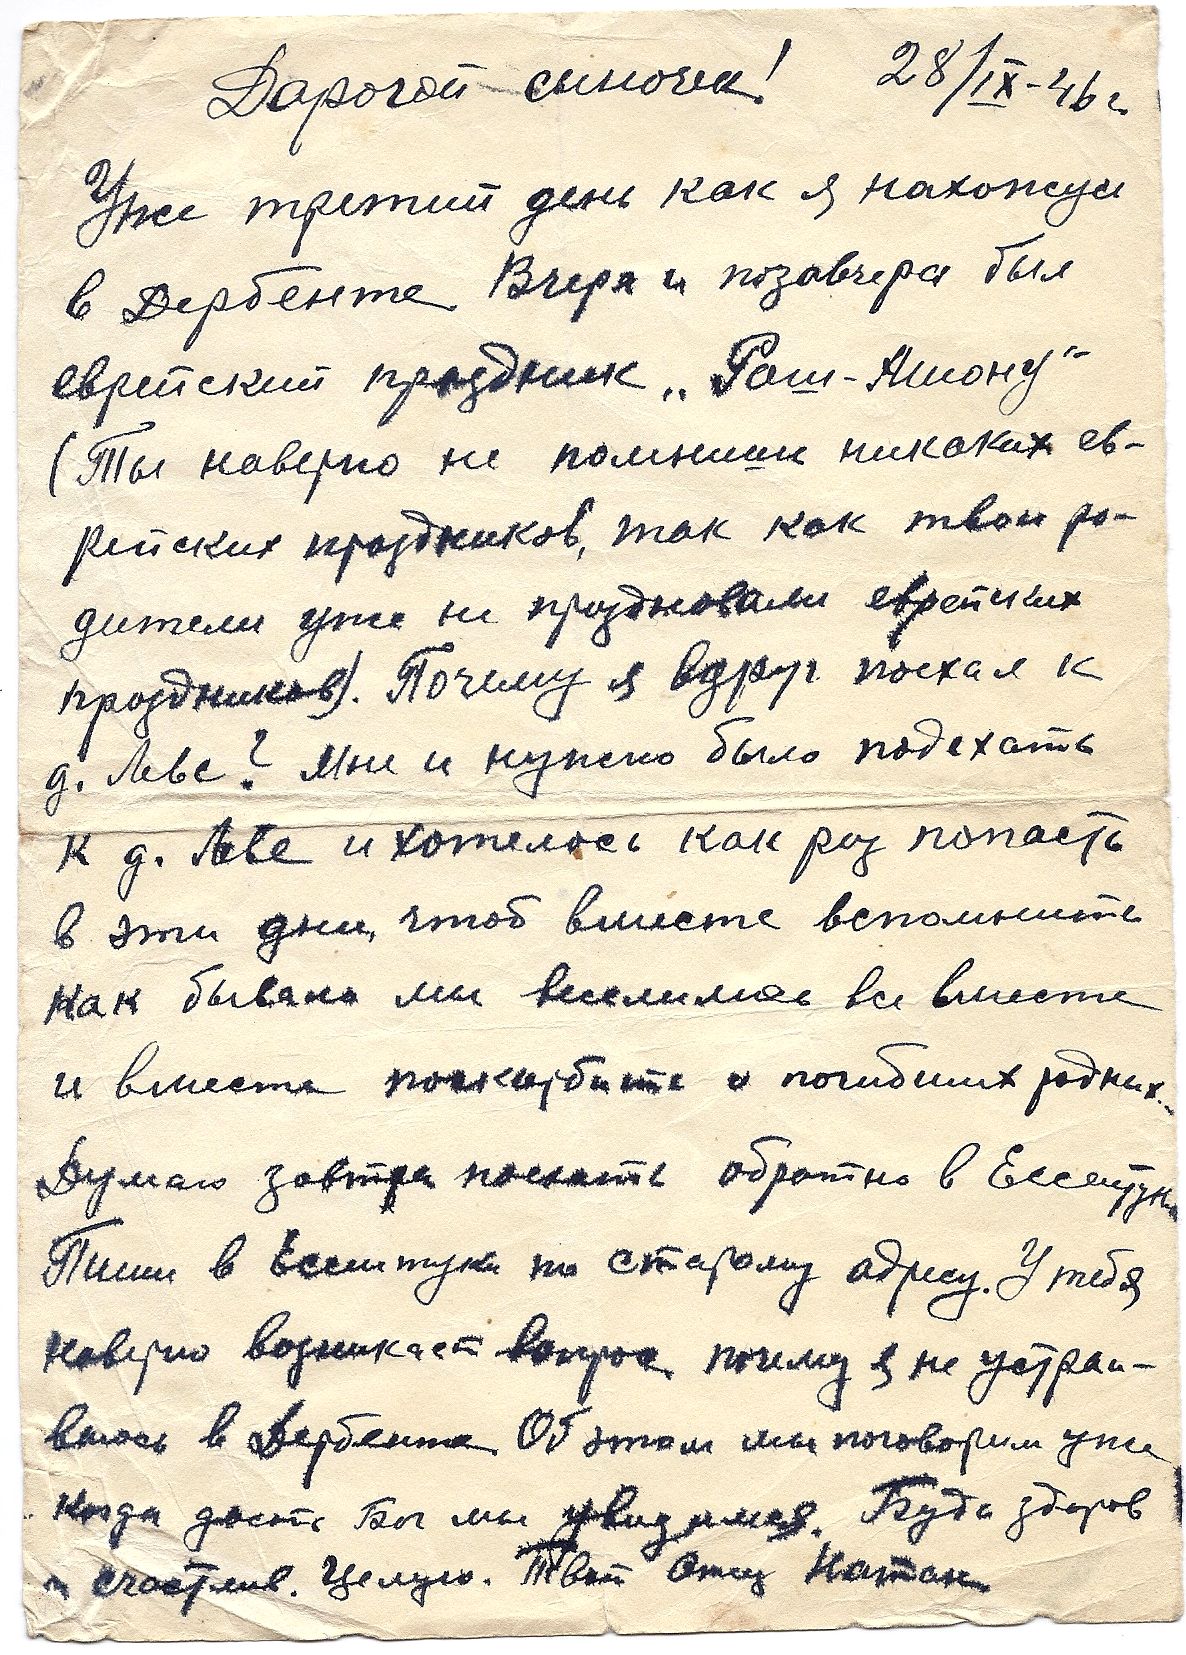 Дарогой сыночек! 28/IX-46 г.
Уже третий день как я нахожусь
в Дербенте. Вчера и позавчера был
еврейский праздник „Рош-Ашону"
(Ты наверно не помниш никаких ев-
рейских праздников, так как твои ро-
дители уже не праздновали еврейских
праздников). Почему я вдруг поехал к
д. Лёве? Мне и нужно было подехать
к д. Лёве и хотелось как раз попасть
в эти дни, чтоб вместе вспомнить
как бывало мы веселились все вместе
и вместе поскорбить о погибших родных...
Думаю завтра поехать обратно в Ессентуки
Пиши в Ессентуки по старому адресу. У тебя
наверно возникает вопрос почему я не устраи-
ваюсь в Дербенте Об этом мы поговорим уже
когда даст Бог мы увидимся. Будь здоров
и счастлив. Целую. Твой Отец Натан